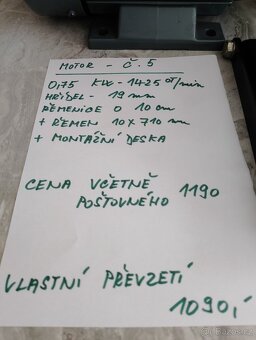 MOTOR - Č. 5
0,75 KW - 1425 OT/min
HŘÍDEL - 19 mm
ŘEMENICE O 10 cm
+ ŘEMEN 10 X 710 mm
+ MONTÁŽNÍ DESKA
CENA VČETNĚ 1190
POŠTOVNÉHO
VLASTNÍ PŘEVZETÍ
1090,-